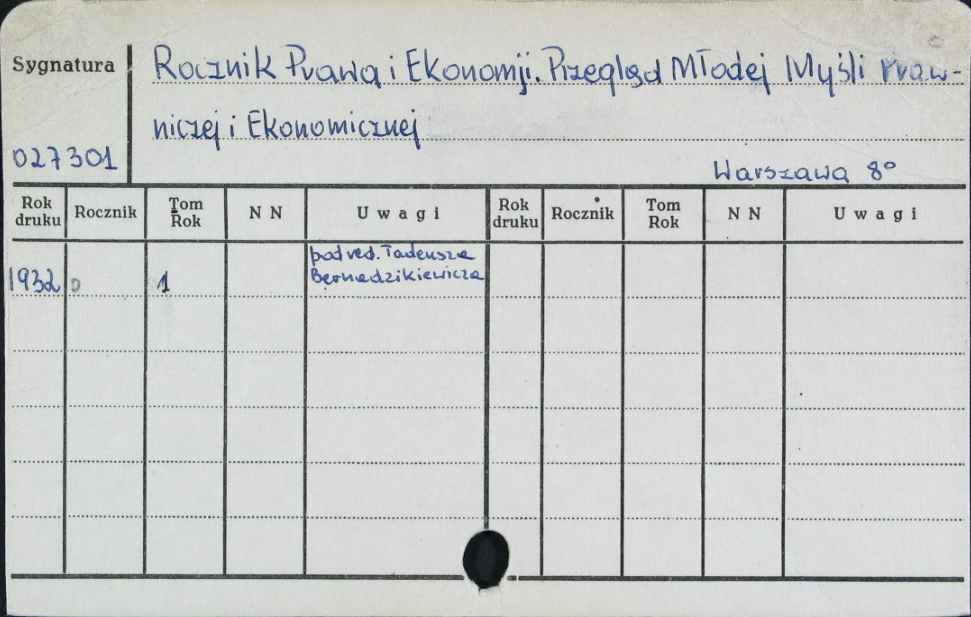 Sygnatura
Rocznik Prawa i Ekonomji. Przegląd Młodej Myśli Praw-
niczej i Ekonomicznej
027301
Warszawa 8°
Rok druku Rocznik Tom Rok N N Uwagi Rok druku Rocznik Tom Rok N N Uwagi
pod red. Tadeusza
1932 1 Bernadzikiewicza